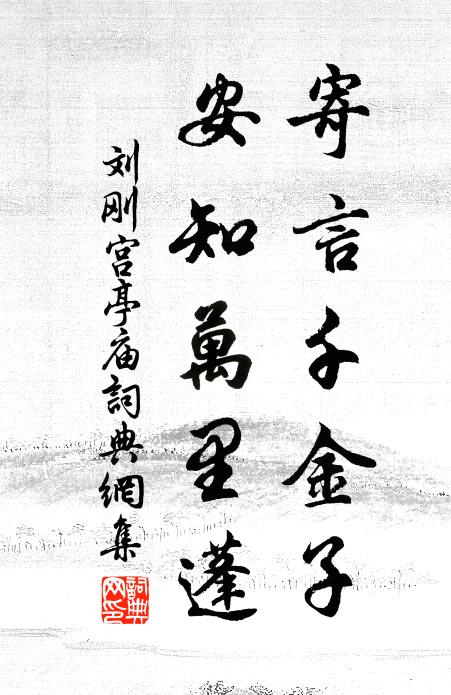 寄言千金子
安知萬里蓬
刘刚宫亭庙詞典網集
詞典网印